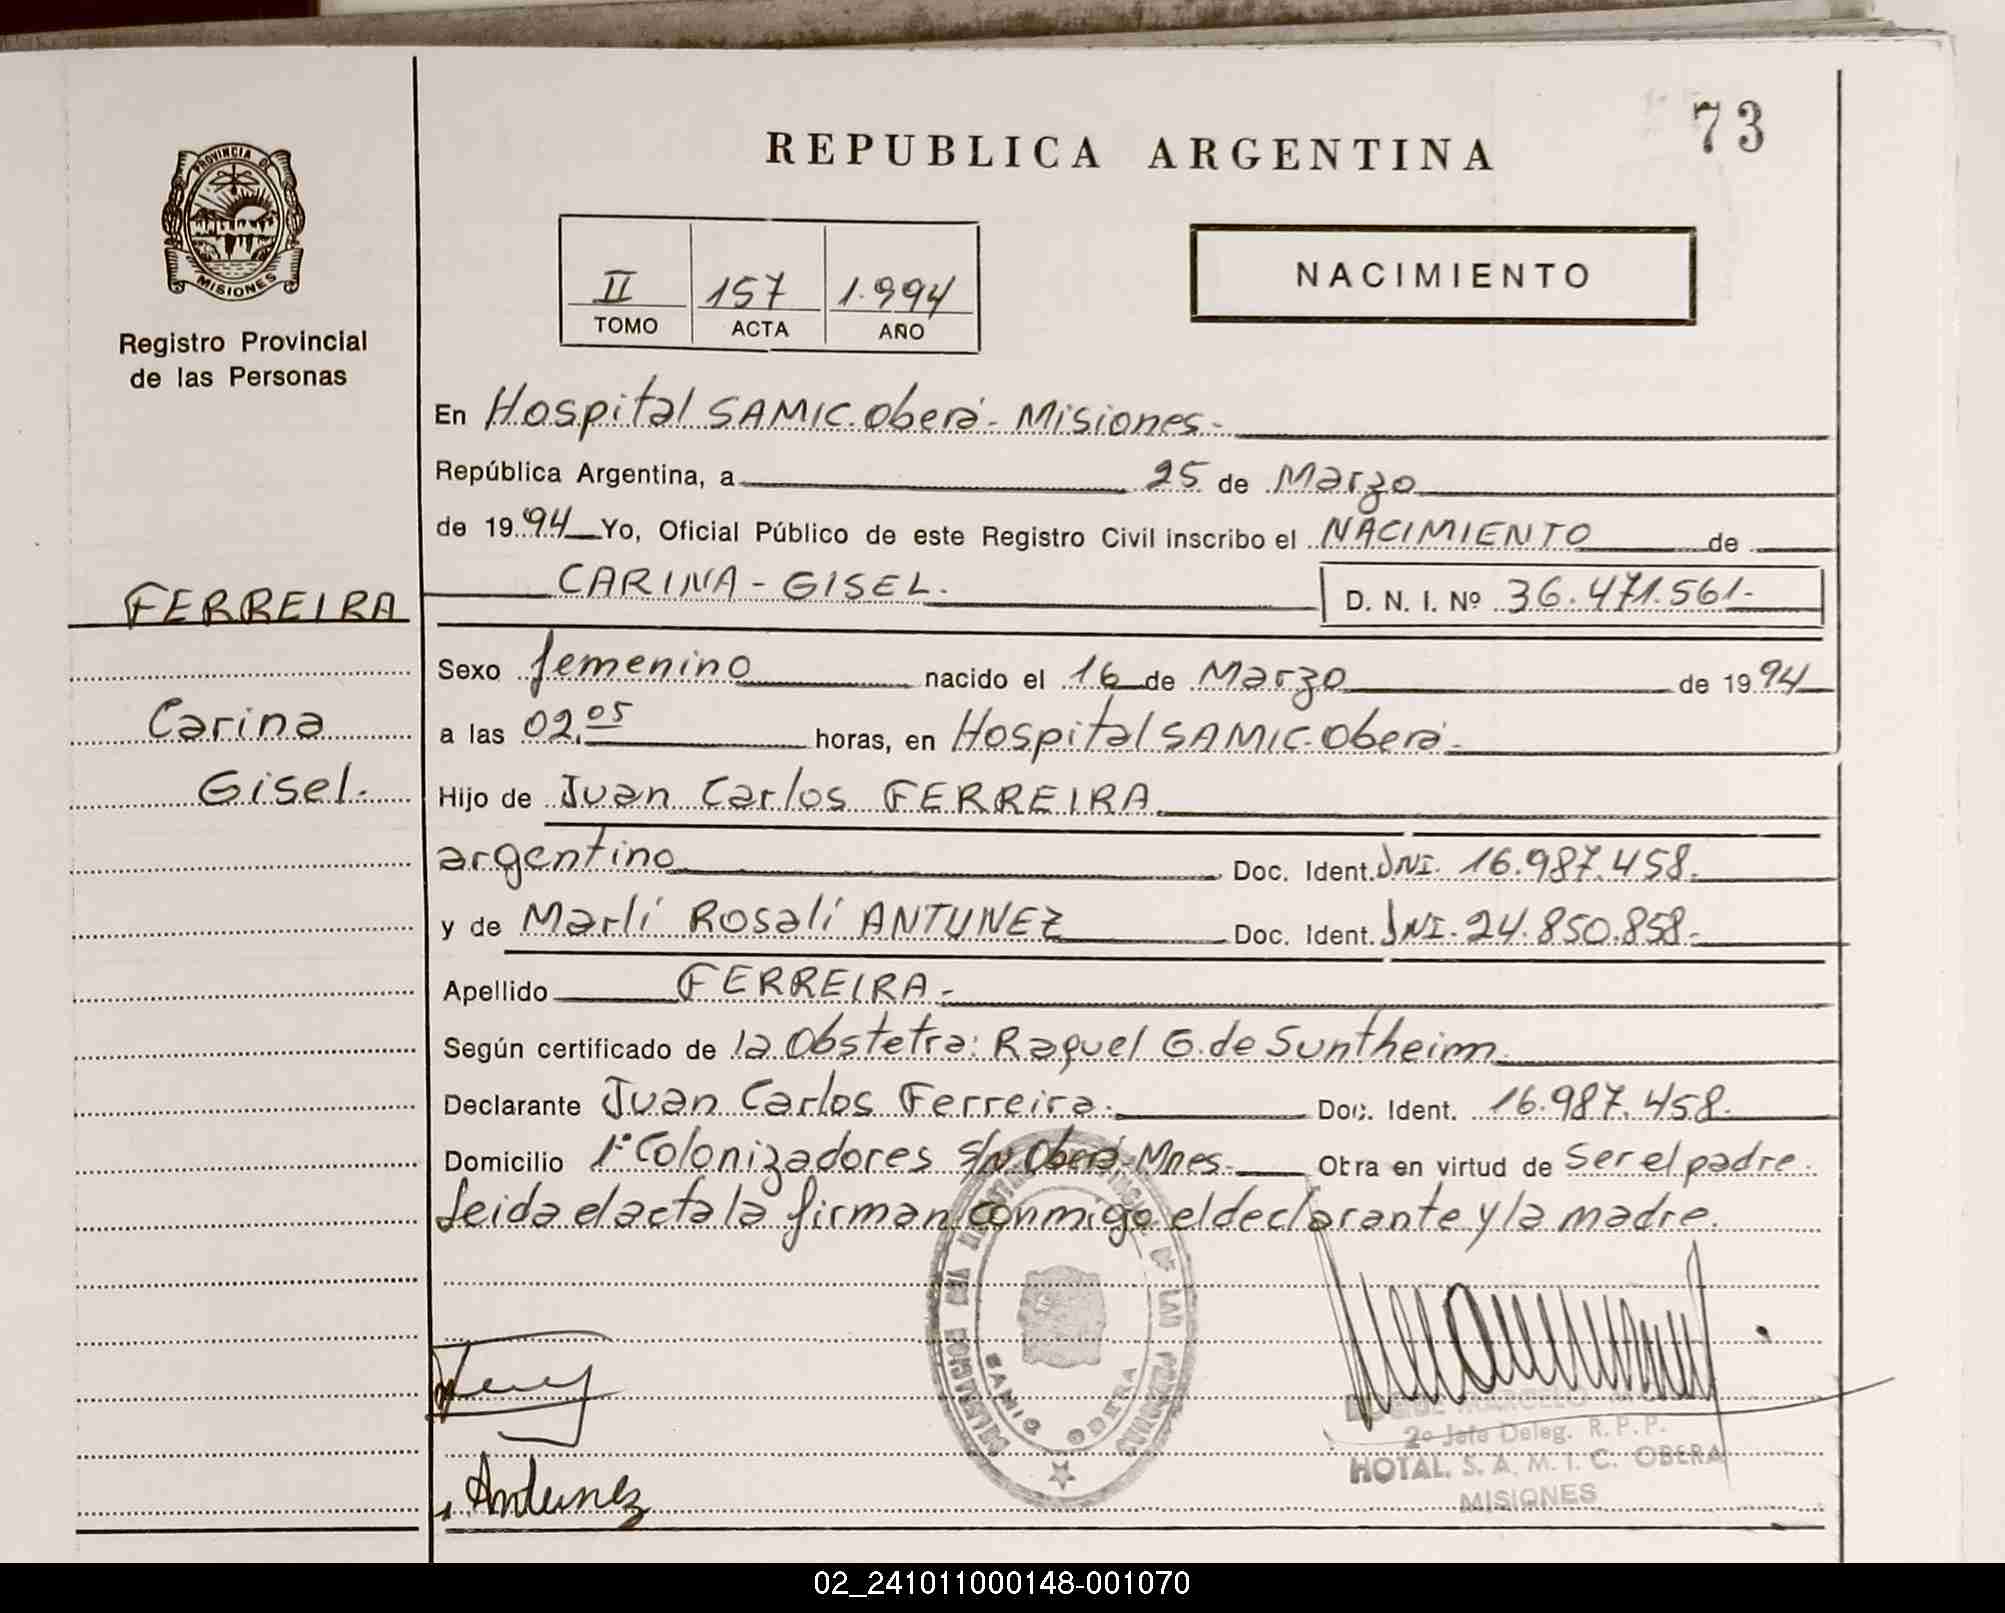 73
REPUBLICA ARGENTINA
PROVINCIA DE
MISIONES
Registro Provincial
de las Personas
II 157 1.994
TOMO ACTA AÑO
NACIMIENTO
En Hospital SAMIC. Oberá - Misiones.-
República Argentina, a 25 de Marzo
de 1994 Yo, Oficial Público de este Registro Civil inscribo el NACIMIENTO de
FERREIRA
Carina
Gisel.
CARINA - GISEL. D. N. I. Nº 36.471.561.-
Sexo femenino nacido el 16 de Marzo de 1994
a las 02,05 horas, en Hospital SAMIC. Oberá.
Hijo de Juan Carlos FERREIRA
argentino Doc. Ident. DNI. 16.987.458.
y de Marlí Rosalí ANTUNEZ Doc. Ident. DNI. 24.850.858.-
Apellido FERREIRA.-
Según certificado de la Obstetra: Raquel G. de Suntheim
Declarante Juan Carlos Ferreira. Doc. Ident. 16.987.458.
Domicilio 1º Colonizadores S/N. Oberá - Mnes. Obra en virtud de Ser el padre.
Leida el acta la firman conmigo el declarante y la madre.
SAMIC OBERA
MARCELO
2º Jefe Deleg. R. P. P.
HOTAL. S. A. M. I. C. OBERA
MISIONES
Antunez
02_241011000148-001070